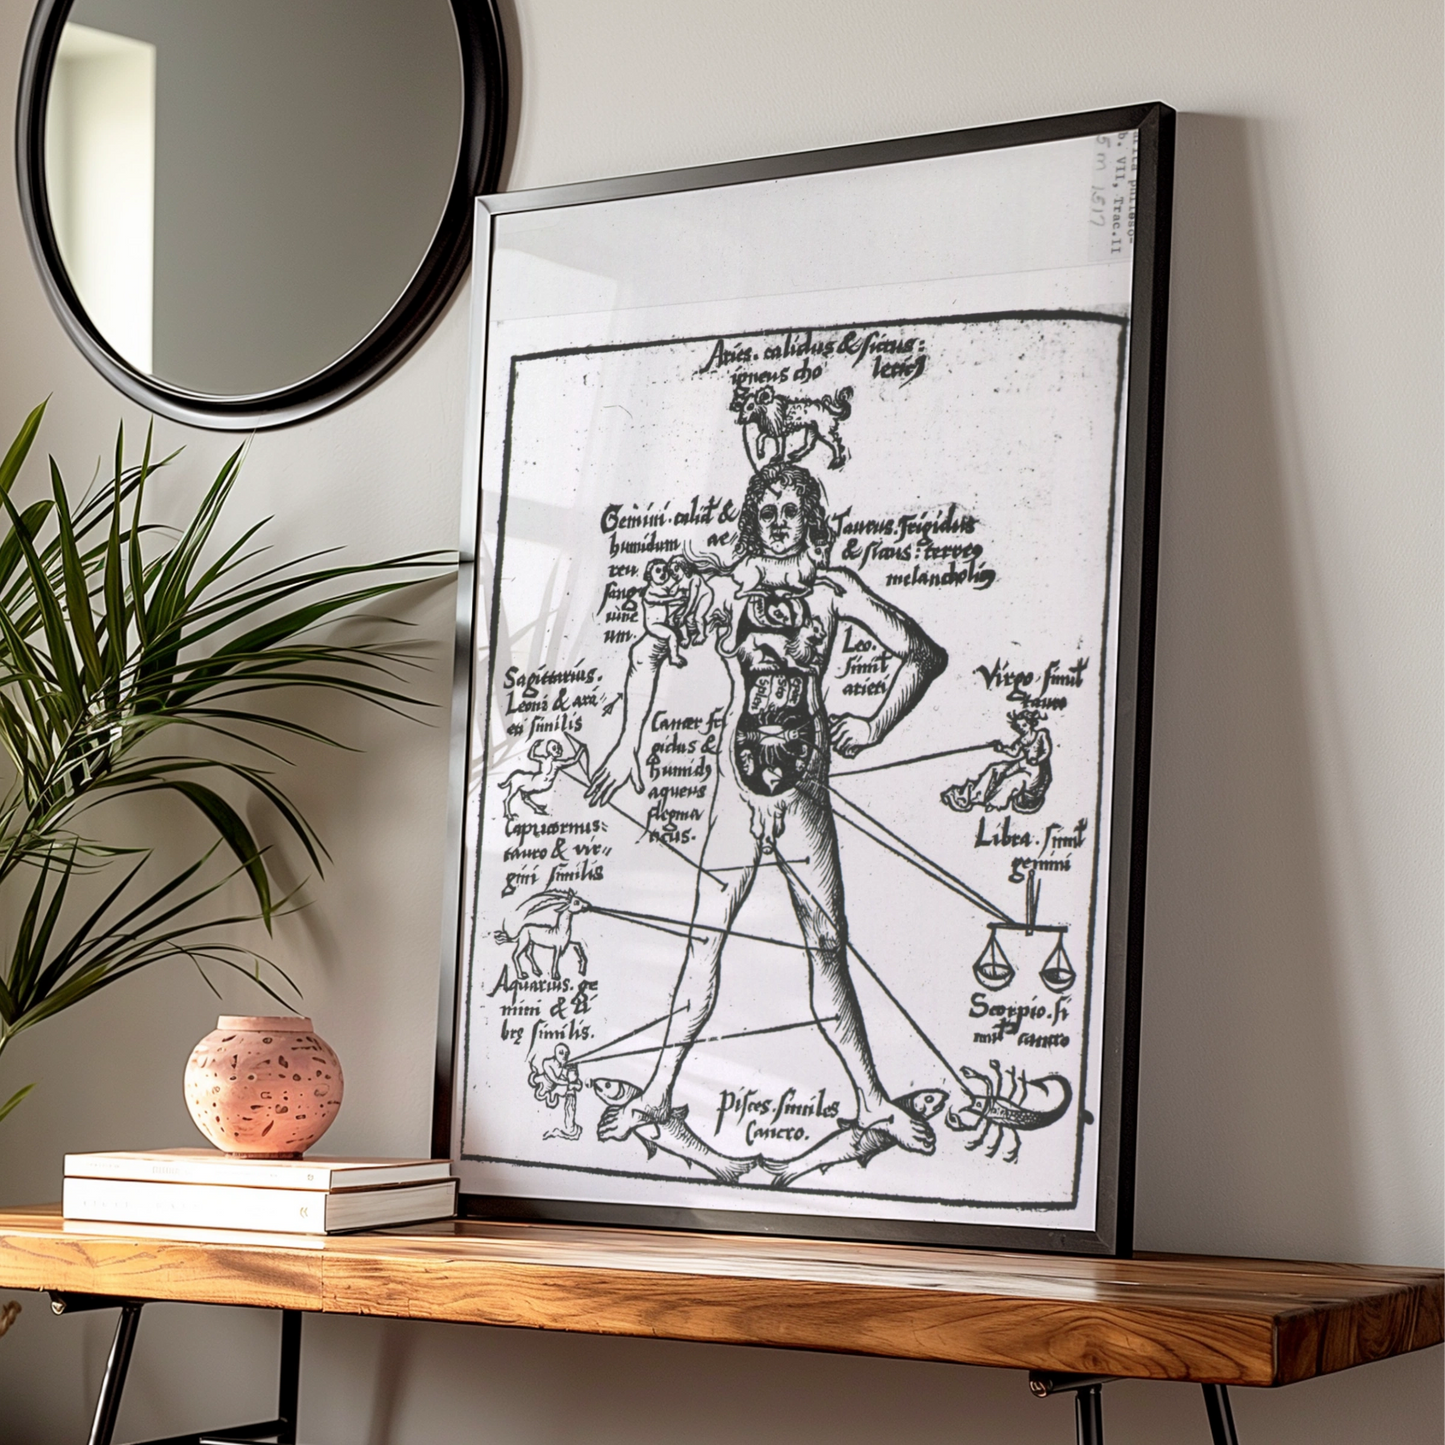 b. VII, Trac.II
5 m 1517
Aries. calidus & siccus:
igneus cho lericꝰ
Gemini. calid̃ &
humidum ae
reu
sang
uine
um.
Taurus. frigidus
& siccus: terreꝰ
melancholicꝰ
Leo.
simil̃
arieti
Sagittarius.
Leoni & ari
eti similis
Cancer fri
gidus &
humidꝰ
aqueus
flegma
ticus.
Virgo. simil̃
tauro
Capricornus:
tauro & vir
gini similis
Libra. simil̃
gemini
Aquarius. ge
mini & li
brę similis.
Scorpio. si
mil̃ cancro
Pisces. similes
Cancro.